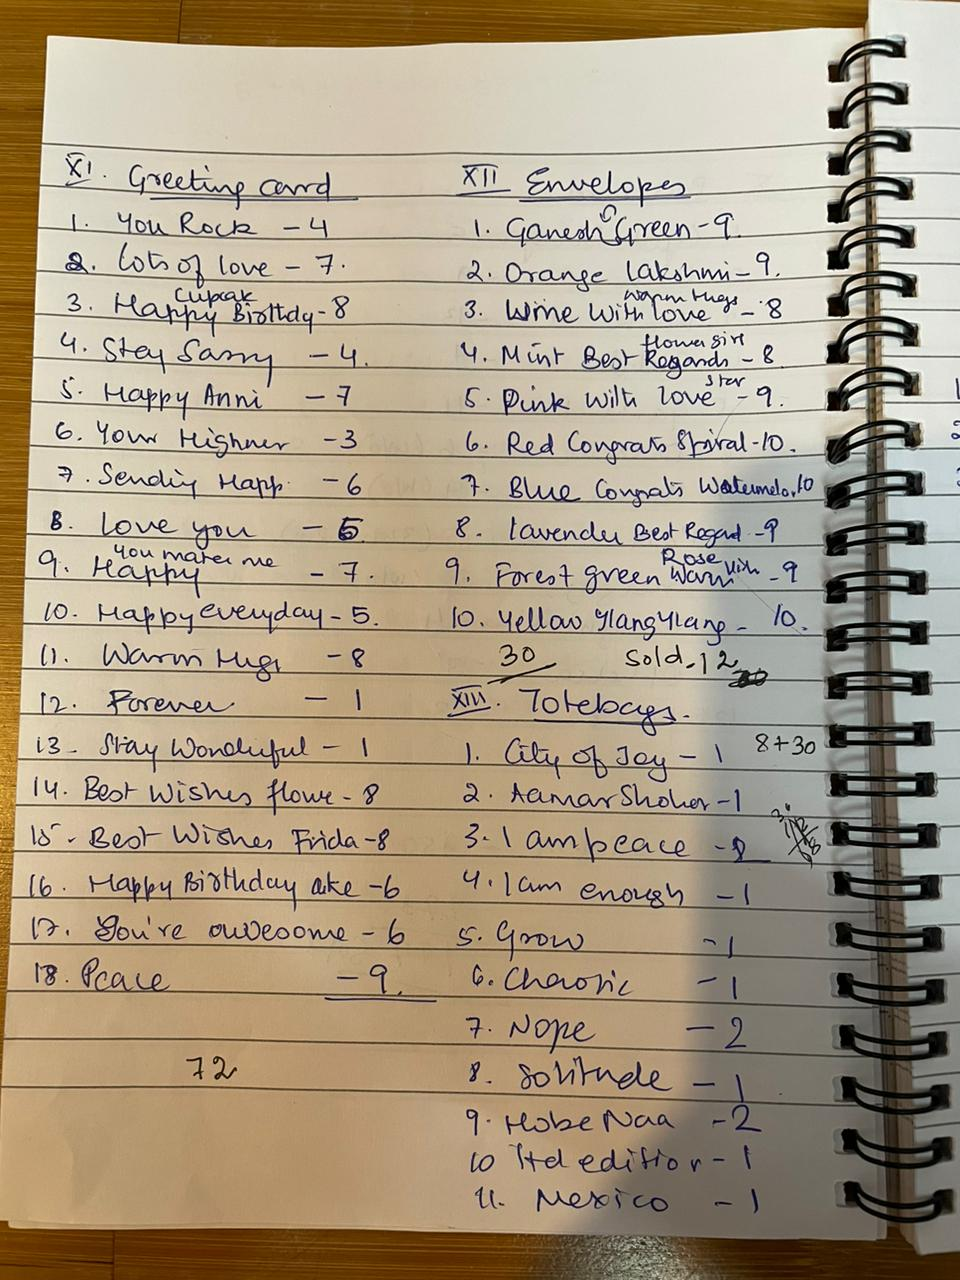 XI. Greeting card
1. You Rock - 4
2. Lots of love - 7.
Cupcak
3. Happy Birthdy - 8
4. Stay Sassy - 4.
5. Happy Anni - 7
6. Your Highner - 3
7. Sendiy Happ. - 6
8. Love you - 5
you maker me
9. Happy - 7.
10. Happy everyday - 5.
11. Warm Hugs - 8
12. Forever - 1
13 - Stay Wonderful - 1
14. Best Wishes flowe - 8
15 - Best Wishes Frida - 8
16. Happy Birthday cake - 6
17. You're awesome - 6
18. Peace - 9.
72
XII Envelopes
1. Ganesh Green - 9.
2. Orange Lakshmi - 9.
Warm Hugs
3. Wine With love - 8
flower girl
4. Mint Best Regards - 8
star
5. Pink With love - 9.
6. Red Congrats Spiral - 10.
7. Blue Congrats Watermelo. 10
8. Lavender Best Regard - 9
Rose
9. Forest green Warm Wish - 9
10. Yellow YlangYlang - 10.
30 Sold - 12
XIII. Totebags.
1. City of Joy - 1 8+30
2. Aamar Shoher - 1
3. I am peace -
4. I am enough - 1
5. Grow - 1
6. Chaotic - 1
7. Nope - 2
8. Solitude - 1
9. Hobe Naa - 2
10 ltd edition - 1
11. Mexico - 1